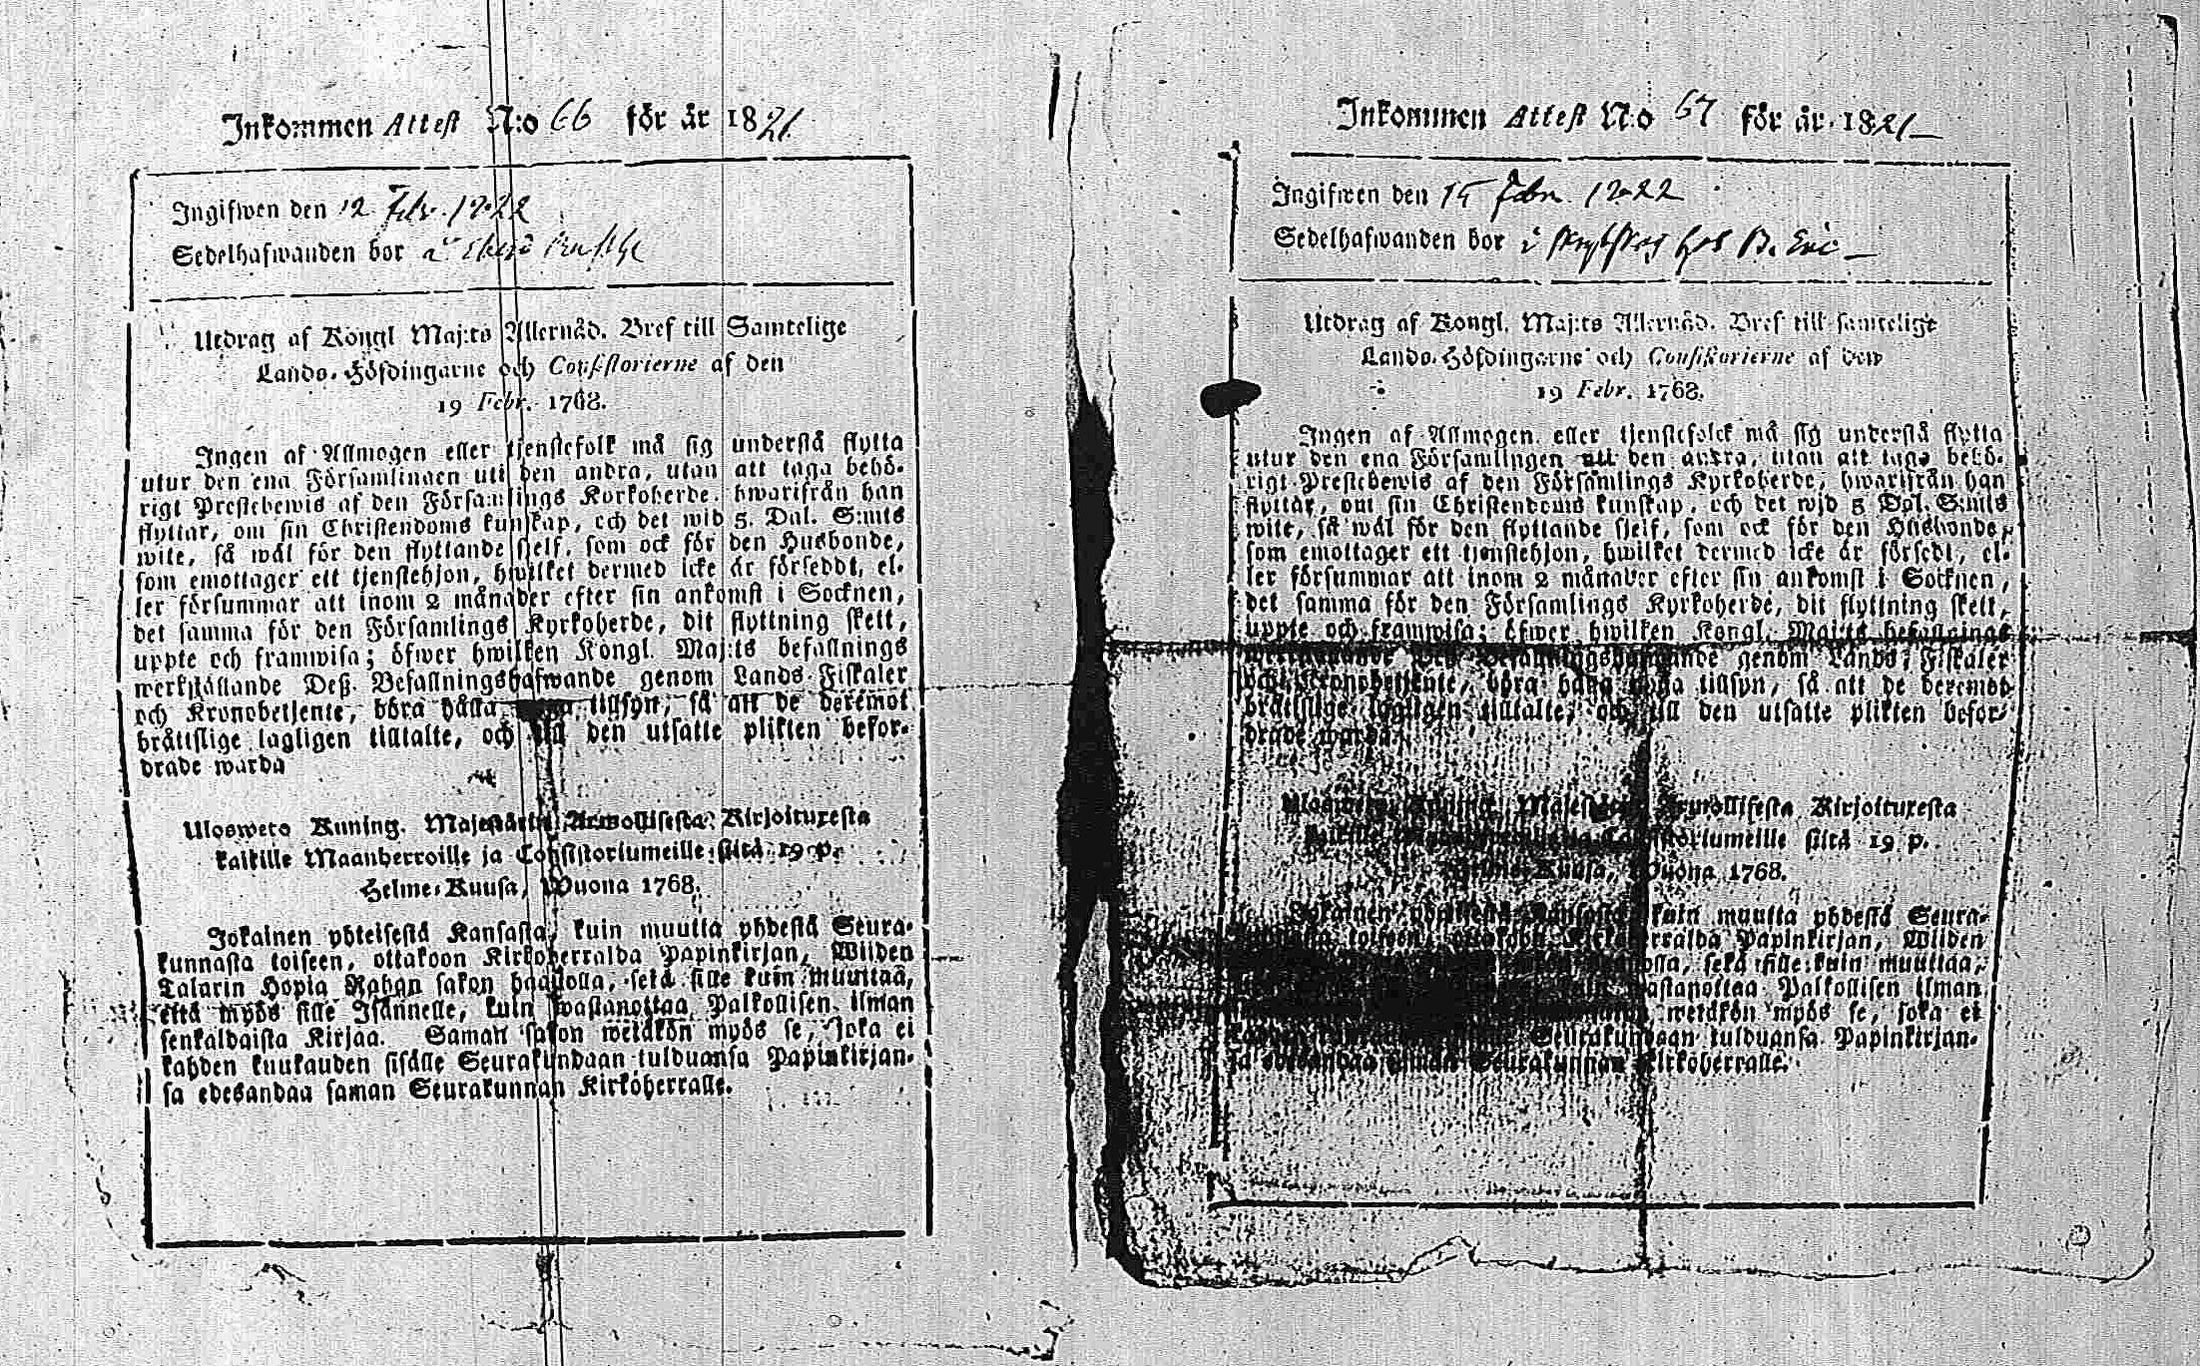 Inkommen Attest N:o 66 för år 1821
Ingifwen den 12 Febr. 1822
Sedelhafwanden bor
Utdrag af Kongl Maj:ts Allernåd. Bref till Samtelige
Lands-Höfdingarne och Consistorierne af den
19 Febr. 1768.
Ingen af Allmogen eller tjenstefolk må sig understå flytta
utur den ena Församlingen uti den andra, utan att taga behö-
rigt Prestebewis af den Församlings Kyrkoherde. hwarifrån han
flyttar, om sin Christendoms kunskap, och det wid 5. Dal. S:mts
wite, så wäl för den flyttande sjelf, som ock för den Husbonde,
som emottager ett tjenstehjon, hwilket dermed icke är förseddt, el-
ler försummar att inom 2 månader efter sin ankomst i Socknen,
det samma för den Församlings Kyrkoherde, dit flyttning skett,
uppte och framwisa; öfwer hwilken Kongl. Maj:ts befallnings
werkställande Deß. Befallningshafwande genom Lands-Fiskaler
och Kronobetjente, böra hålla tillsyn, så att de deremot
bråttslige lagligen tilltalte, och till den utsatte plikten befor-
drade warda
Ulosweto Kuning. Majestätin Armollisesta Kirjoituxesta
kaikille Maanherroille ja Consistoriumeille siitä 19 p.
Helme-Kuusa, Wuona 1768.
Jokainen yhteisestä Kansasta, kuin muutta yhdestä Seura-
kunnasta toiseen, ottakoon Kirkoherralda Papinkirjan, Wiiden
Talarin Hopia Rahan sakon haastolla, sekä sille kuin muuttaa,
että myös sille Isännelle, kuin wastanottaa Palkollisen ilman
senkaldaista Kirjaa. Saman sakon wetäkön myös se, joka ei
kahden kuukauden sisälle Seurakundaan tulduansa Papinkirjan-
sa edesandaa saman Seurakunnan Kirkoherralle.
Inkommen Attest N:o 67 för år 1821
Ingifwen den 15 Febr. 1822
Sedelhafwanden bor i
Utdrag af Kongl. Maj:ts Allernåd. Bref till samtelige
Lands-Höfdingarne och Consistorierne af den
19 Febr. 1768.
Ingen af Allmogen eller tjenstefolck må sig understå flytta
utur den ena Församlingen uti den andra, utan att taga behö-
rigt Prestebewis af den Församlings Kyrkoherde, hwarifrån han
flyttar, om sin Christendoms kunskap, och det wid 5 Dal. S:mts
wite, så wäl för den flyttande sjelf, som ock för den Husbonde,
som emottager ett tjenstehjon, hwilket dermed icke är försedt, el-
ler försummar att inom 2 månader efter sin ankomst i Socknen,
det samma för den Församlings Kyrkoherde, dit flyttning skett,
uppte och framwisa; öfwer hwilken Kongl. Maj:ts befallnings
genom Lands-Fiskaler
och Kronobetjente, böra hålla tillsyn, så att de deremot
bråttslige lagligen tilltalte, och till den utsatte plikten befor-
drade warda
Majestätin Armollisesta Kirjoituxesta
Consistoriumeille siitä 19 p.
Helme-Kuusa, Wuona 1768.
Jokainen yhteisestä Kansasta kuin muutta yhdestä Seura-
toiseen, ottakoon Kirkoherralda Papinkirjan, Wiiden
sekä sille kuin muuttaa,
wastanottaa Palkollisen ilman
wetäkön myös se, joka ei
Seurakundaan tulduansa Papinkirjan-
sa edesandaa saman Seurakunnan Kirkoherralle.